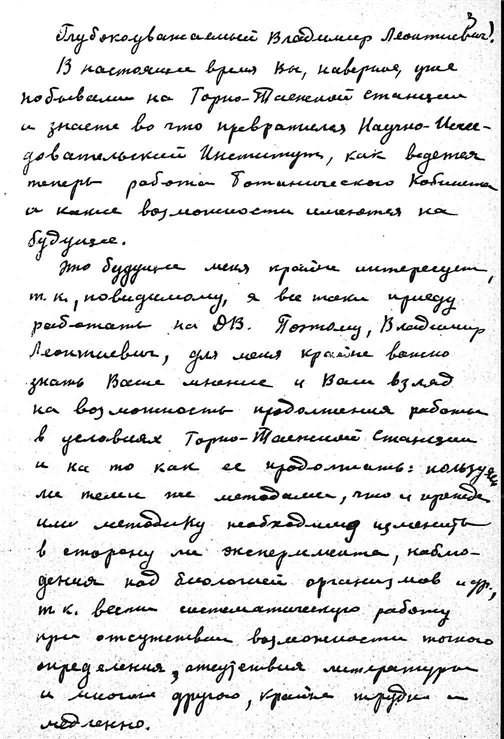 3
Глубокоуважаемый Владимир Леонтиевич!
В настоящее время Вы, наверное, уже
побывали на Горно-Таежной станции
и знаете во что превратился Научно-Иссле-
довательский Институт, как ведется
теперь работа Ботанического Кабинета
и какие возможности имеются на
будущее.
Это будущее меня крайне интересует,
т.к., повидимому, я все таки приеду
работать на ДВ. Поэтому, Владимир
Леонтиевич, для меня крайне важно
знать Ваше мнение и Ваш взгляд
на возможность продолжения работы
в условиях Горно-Таежной станции
и на то как ее продолжать: пользуясь
ли теми же методами, что и прежде
или методику необходимо изменить
в сторону ли эксперимента, наблю-
дения над биологией организмов и др.,
т.к. вести систематическую работу
при отсутствии возможности точного
определения, отсутствия литературы
и многого другого, крайне трудно и
медленно.